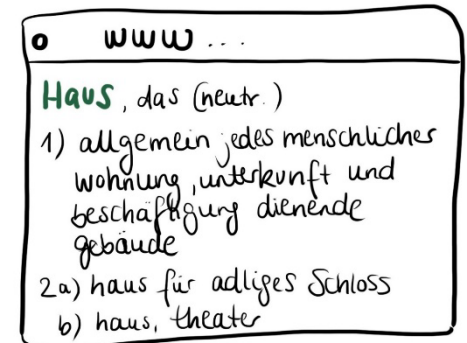 www...
Haus, das (neutr.)
1) allgemein jedes menschlicher
wohnung, unterkunft und
beschäftigung dienende
gebäude
2a) haus für adliges Schloss
b) haus, theater